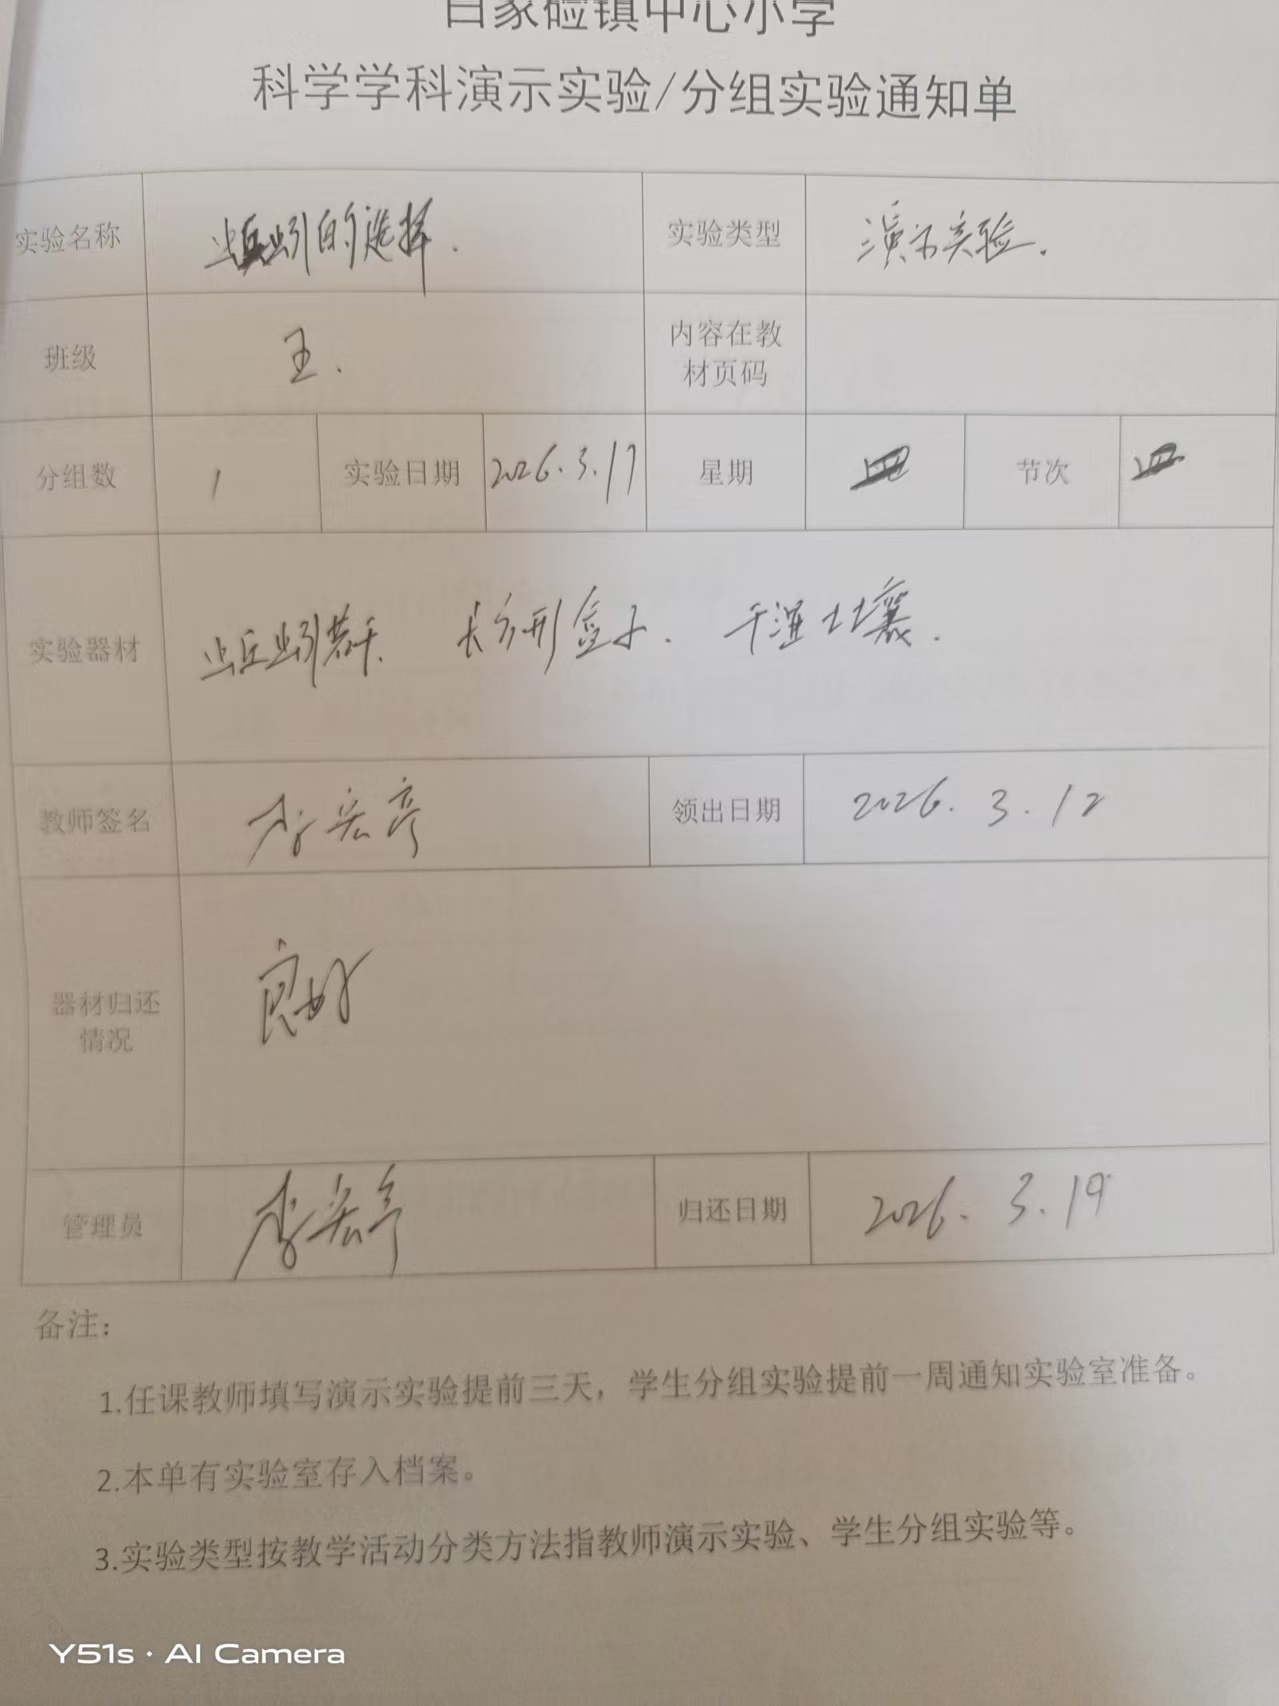 白家硷镇中心小学
科学学科演示实验/分组实验通知单
实验名称 蚯蚓的选择. 实验类型 演示实验.
班级 五. 内容在教材页码
分组数 1 实验日期 2026.3.17 星期 四 节次 四
实验器材 蚯蚓若干. 长方形盒子. 干湿土壤.
教师签名 李宏亮 领出日期 2026.3.12
器材归还情况 良好
管理员 李宏亮 归还日期 2026.3.19
备注：
1.任课教师填写演示实验提前三天，学生分组实验提前一周通知实验室准备。
2.本单有实验室存入档案。
3.实验类型按教学活动分类方法指教师演示实验、学生分组实验等。
Y51s · AI Camera